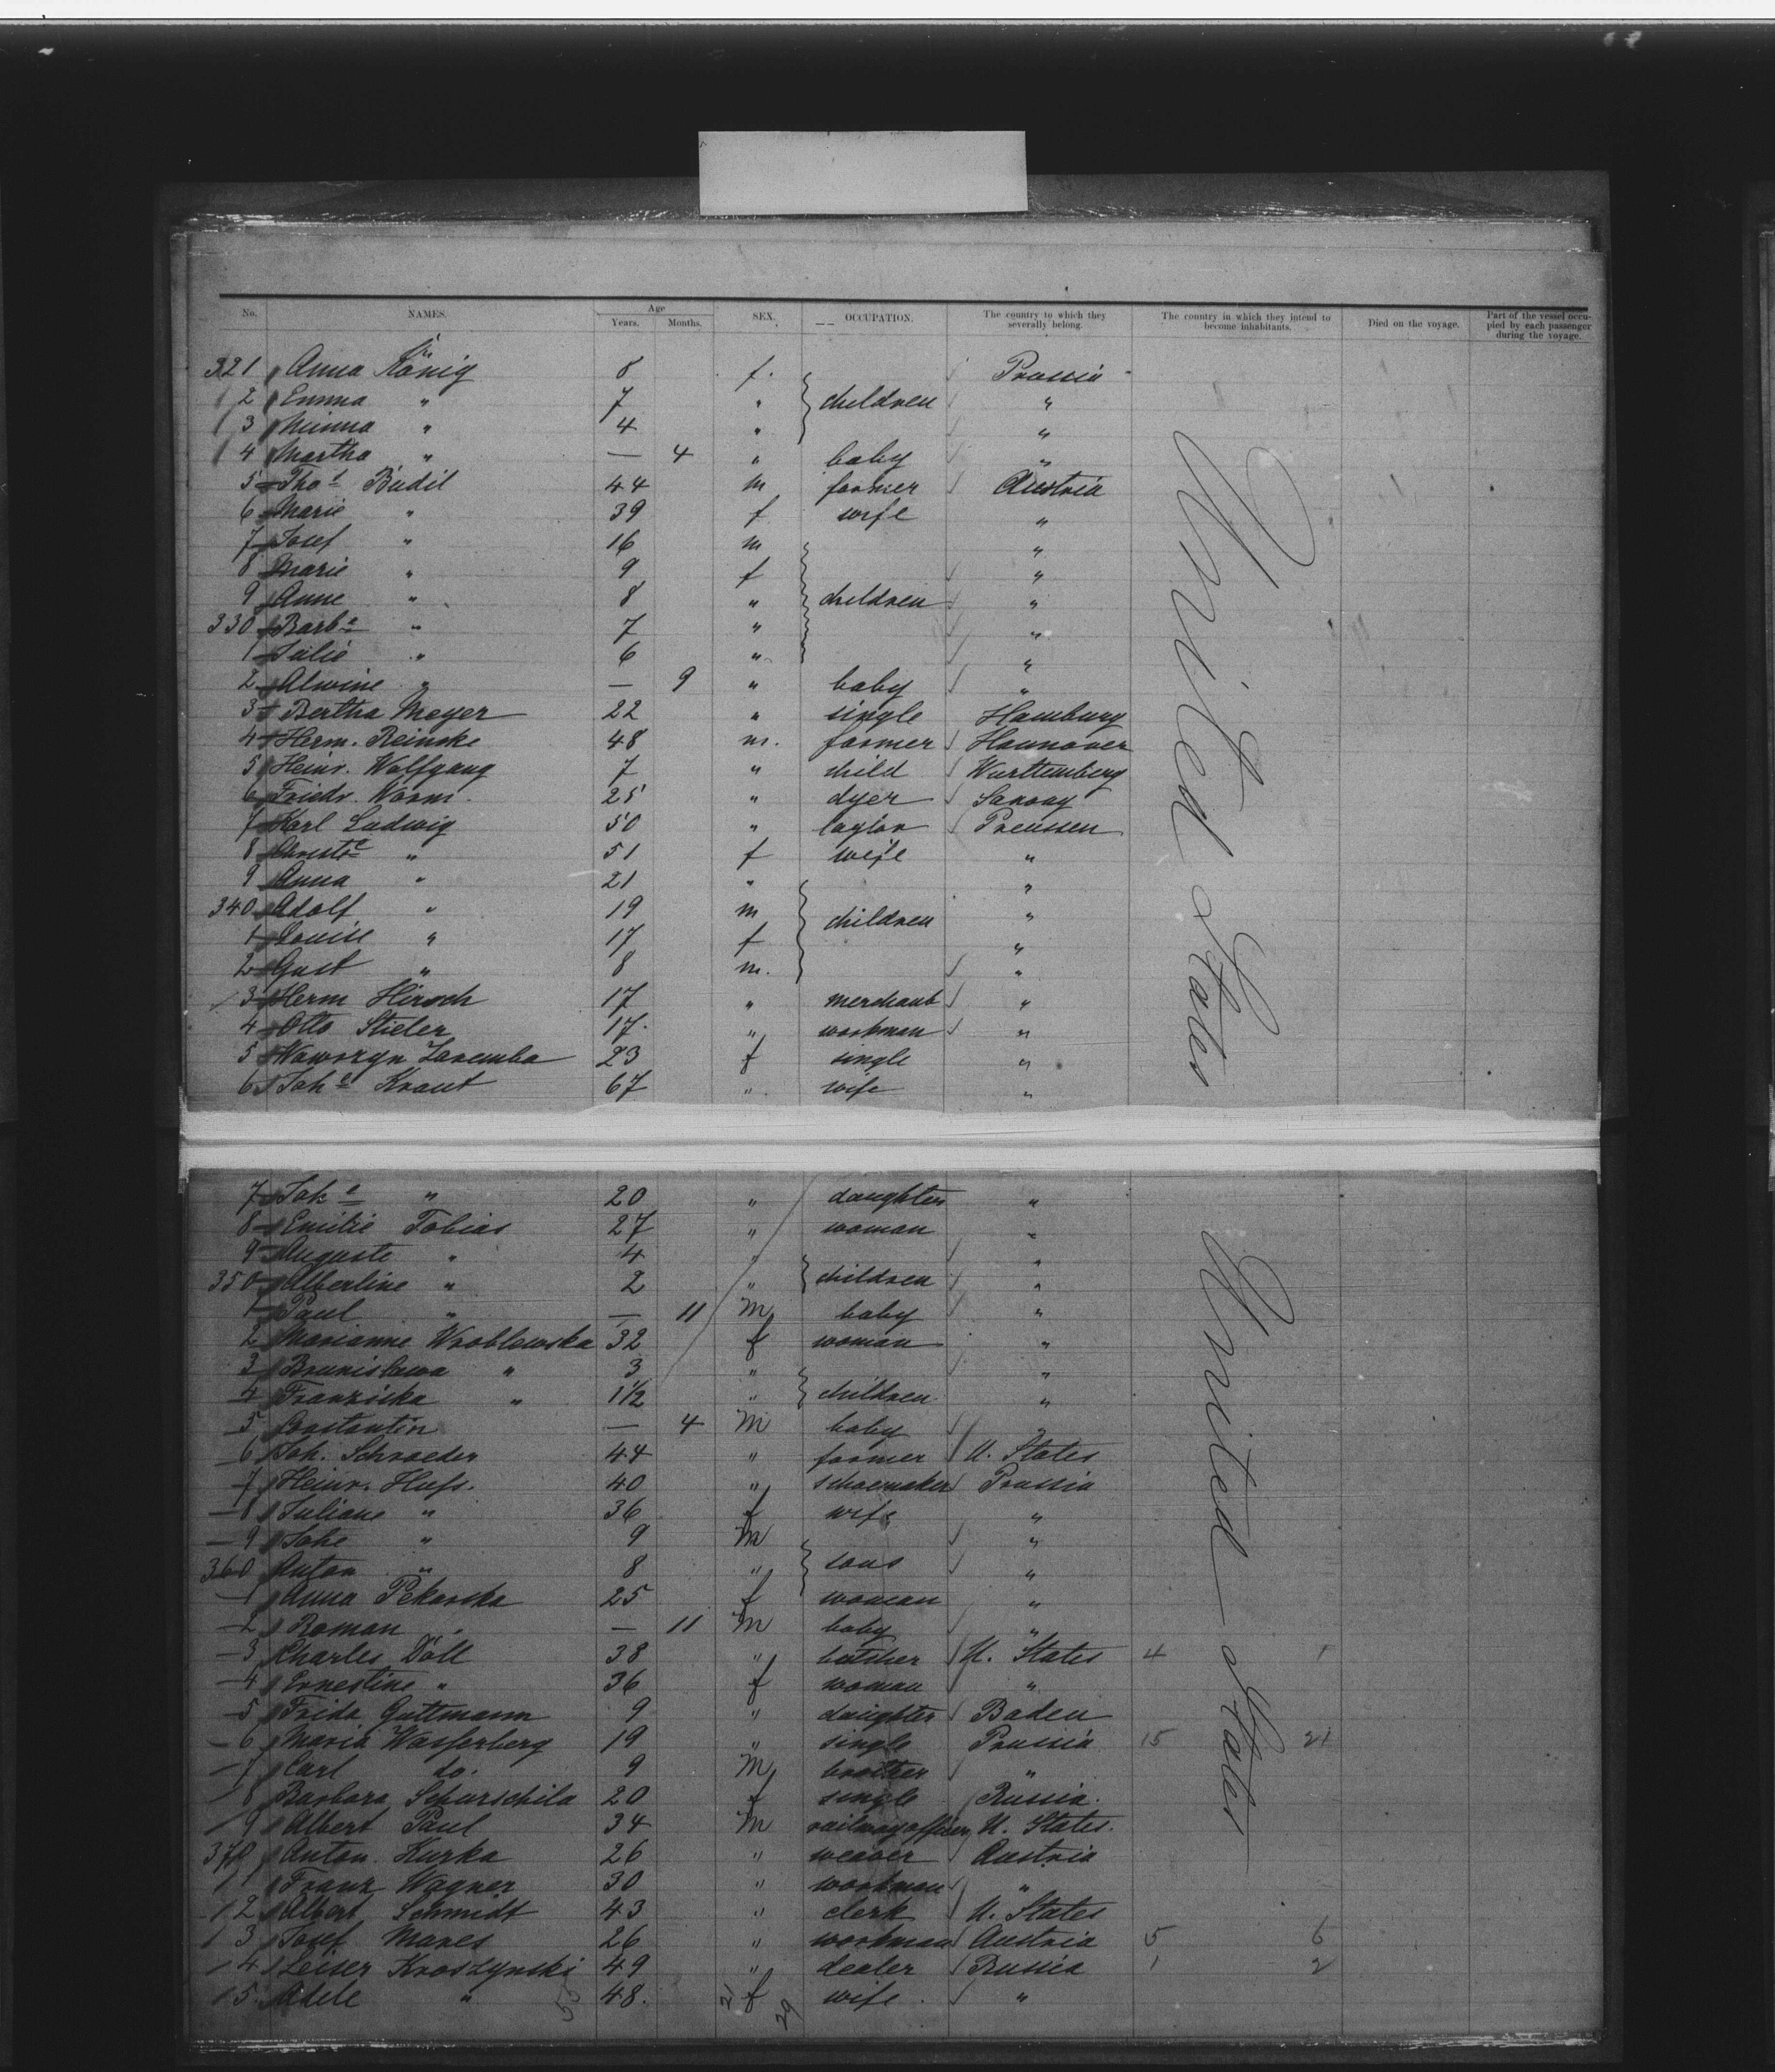 No. NAMES. Age Years. Months. SEX. OCCUPATION. The country to which they severally belong. The country in which they intend to become inhabitants. Died on the voyage. Part of the vessel occupied by each passenger during the voyage.
321 Anna König 8 f. Prussia
2 Emma " 7 " children "
3 Minna " 4 " "
4 Martha " — 4 " baby "
5 Thos Budil 44 m farmer Austria
6 Marie " 39 f wife "
7 Josef " 16 m "
8 Marie " 9 f "
9 Anne " 8 " children "
330 Barba " 7 " "
1 Julie " 6 " "
2 Alwine " — 9 " baby "
3 Bertha Meyer 22 " single Hamburg
4 Herm. Reinske 48 m. farmer Hannover
5 Heinr. Wolfgang 7 " child Wurttemberg
6 Friedr. Worm. 25 " dyer Saxony
7 Karl Ludwig 50 " taylor Preussen
8 Christe " 51 f wife "
9 Anna " 21 " "
340 Adolf " 19 m children "
1 Louise " 17 f "
2 Gust " 8 m. "
3 Herm Hirsch 17 " merchant "
4 Otto Stieler 17 " workman "
5 Wawrzyn Zaremba 23 f single "
6 Johe Kraut 67 " wife "
United States
7 Johe " 20 " daughter "
8 Emilie Tobias 27 " woman "
9 Auguste " 4 " "
350 Albertine " 2 " children "
1 Paul " — 11 m baby "
2 Marianne Wroblewska 32 f woman "
3 Brunislawa " 3 " "
4 Franziska " 1 1/2 " children "
5 Constantin — 4 m baby "
6 Joh. Schroeder 44 " farmer U. States
7 Heinr. Hufs. 40 " schoemaker Prussia
8 Juliane " 36 f wife "
9 Johe " 9 m "
360 Anton " 8 " sons "
1 Anna Pekarska 25 f woman "
2 Roman " — 11 m baby "
3 Charles Döll 38 " butcher U. States 4 1
4 Ernestine " 36 f woman "
5 Frida Guttmann 9 " daughter Baden
6 Maria Wasserberg 19 " single Prussia 15 21
7 Carl do. 9 m brother "
8 Barbara Schurschila 20 f single Russia.
9 Albert Paul 34 m railwayofficer U. States.
370 Anton Kurka 26 " weaver Austria
1 Franz Wagner 30 " workman "
2 Albert Schmidt 43 " clerk U. States
3 Josef Mares 26 " workman Austria 5 6
4 Leiser Kroszynski 49 " dealer Russia 1 2
5 Adele " 55 48. 21 f 29 wife "
United States